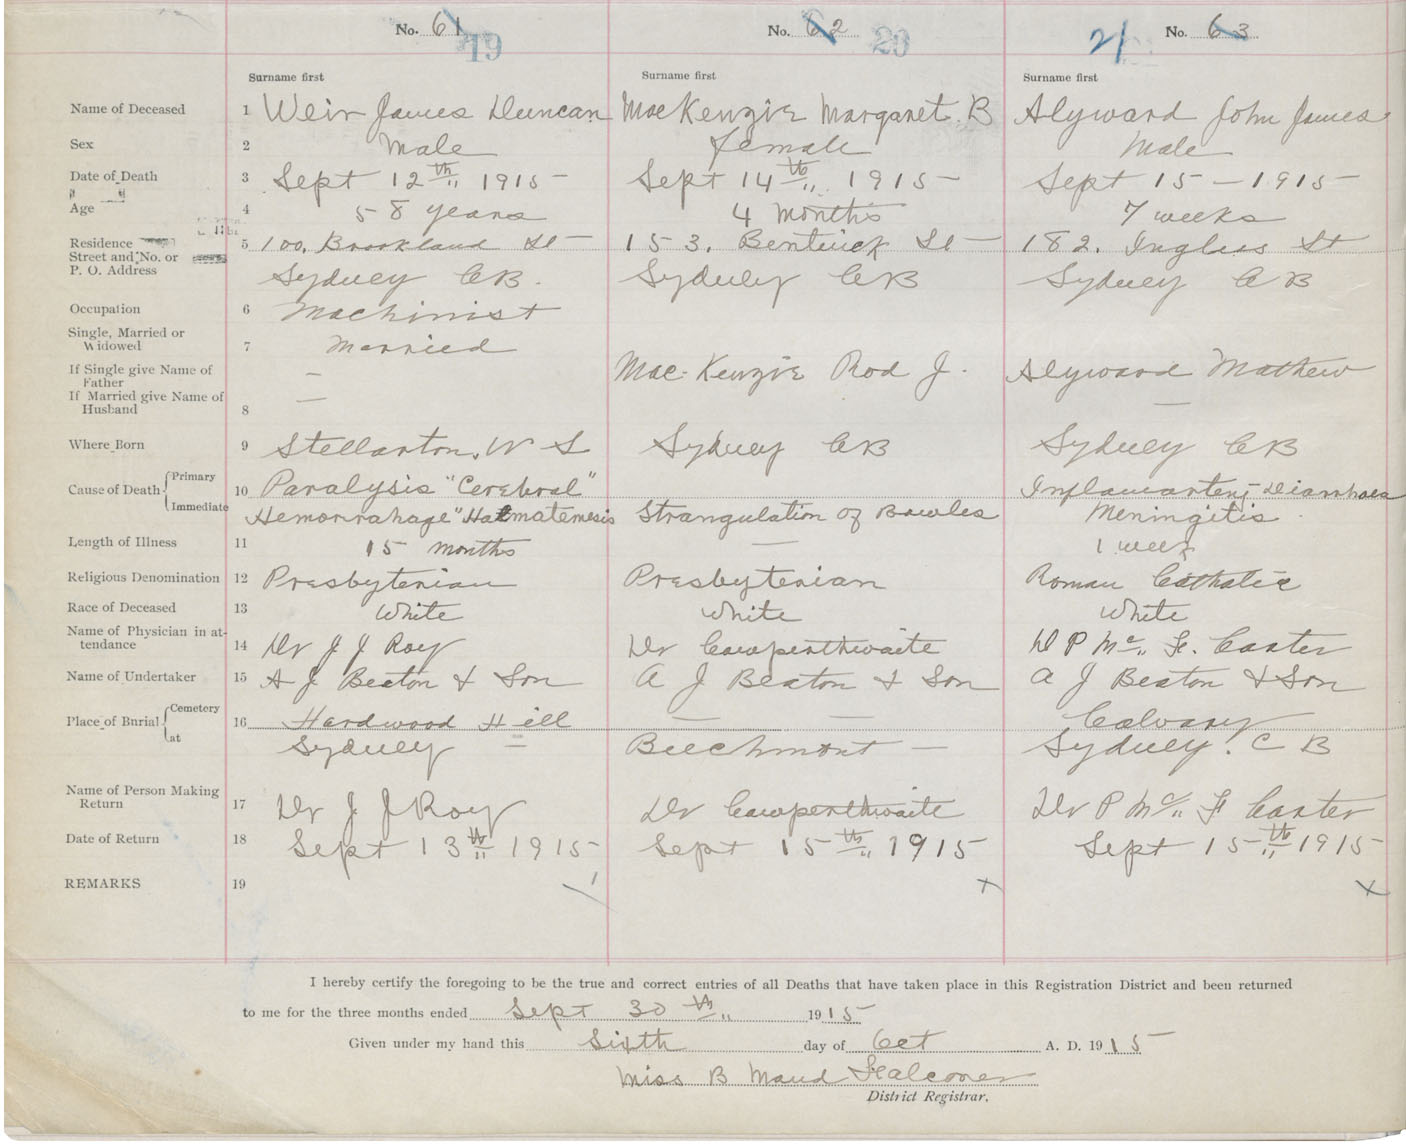 No. 61 19
No. 62 20
21 No. 63
Surname first Surname first Surname first
Name of Deceased 1 Weir James Duncan MacKenzie Margaret. B Alyward John James
Sex 2 Male female Male
Date of Death 3 Sept 12th 1915 Sept 14th 1915 Sept 15 - 1915
Age 4 58 years 4 months 7 weeks
Residence 5 100. Brookland St 153. Bentinck St 182. Ingless St
Street and No. or
P. O. Address Sydney CB. Sydney CB Sydney CB
Occupation 6 Machinist
Single, Married or
Widowed 7 Married
If Single give Name of
Father — Mac-Kenzie Rod J. Alyward Mathew
If Married give Name of
Husband 8 — —
Where Born 9 Stellarton, N S Sydney CB Sydney CB
Cause of Death { Primary
10 Paralysis "Cerebral" Diarrhoea
Immediate Hemorrahage" Hatmatemesis Strangulation of Bowles Meningitis
Length of Illness 11 15 months — 1 week
Religious Denomination 12 Presbyterian Presbyterian Roman Catholic
Race of Deceased 13 White White White
Name of Physician in at-
tendance 14 Dr J J Roy Dr Cowperthwaite D P Mc. F. Carter
Name of Undertaker 15 A J Beaton & Son A J Beaton & Son A J Beaton & Son
Place of Burial { Cemetery
16 Hardwood Hill — — Calvary
at Sydney — Beechmont — Sydney. C B
Name of Person Making
Return 17 Dr J J Roy Dr Cowperthwaite Dr P Mc F Carter
Date of Return 18 Sept 13th 1915 Sept 15th 1915 Sept 15th 1915
REMARKS 19 x x
I hereby certify the foregoing to be the true and correct entries of all Deaths that have taken place in this Registration District and been returned
to me for the three months ended Sept 30th 1915
Given under my hand this Sixth day of Oct A. D. 1915
Miss B Maud Falconer
District Registrar.